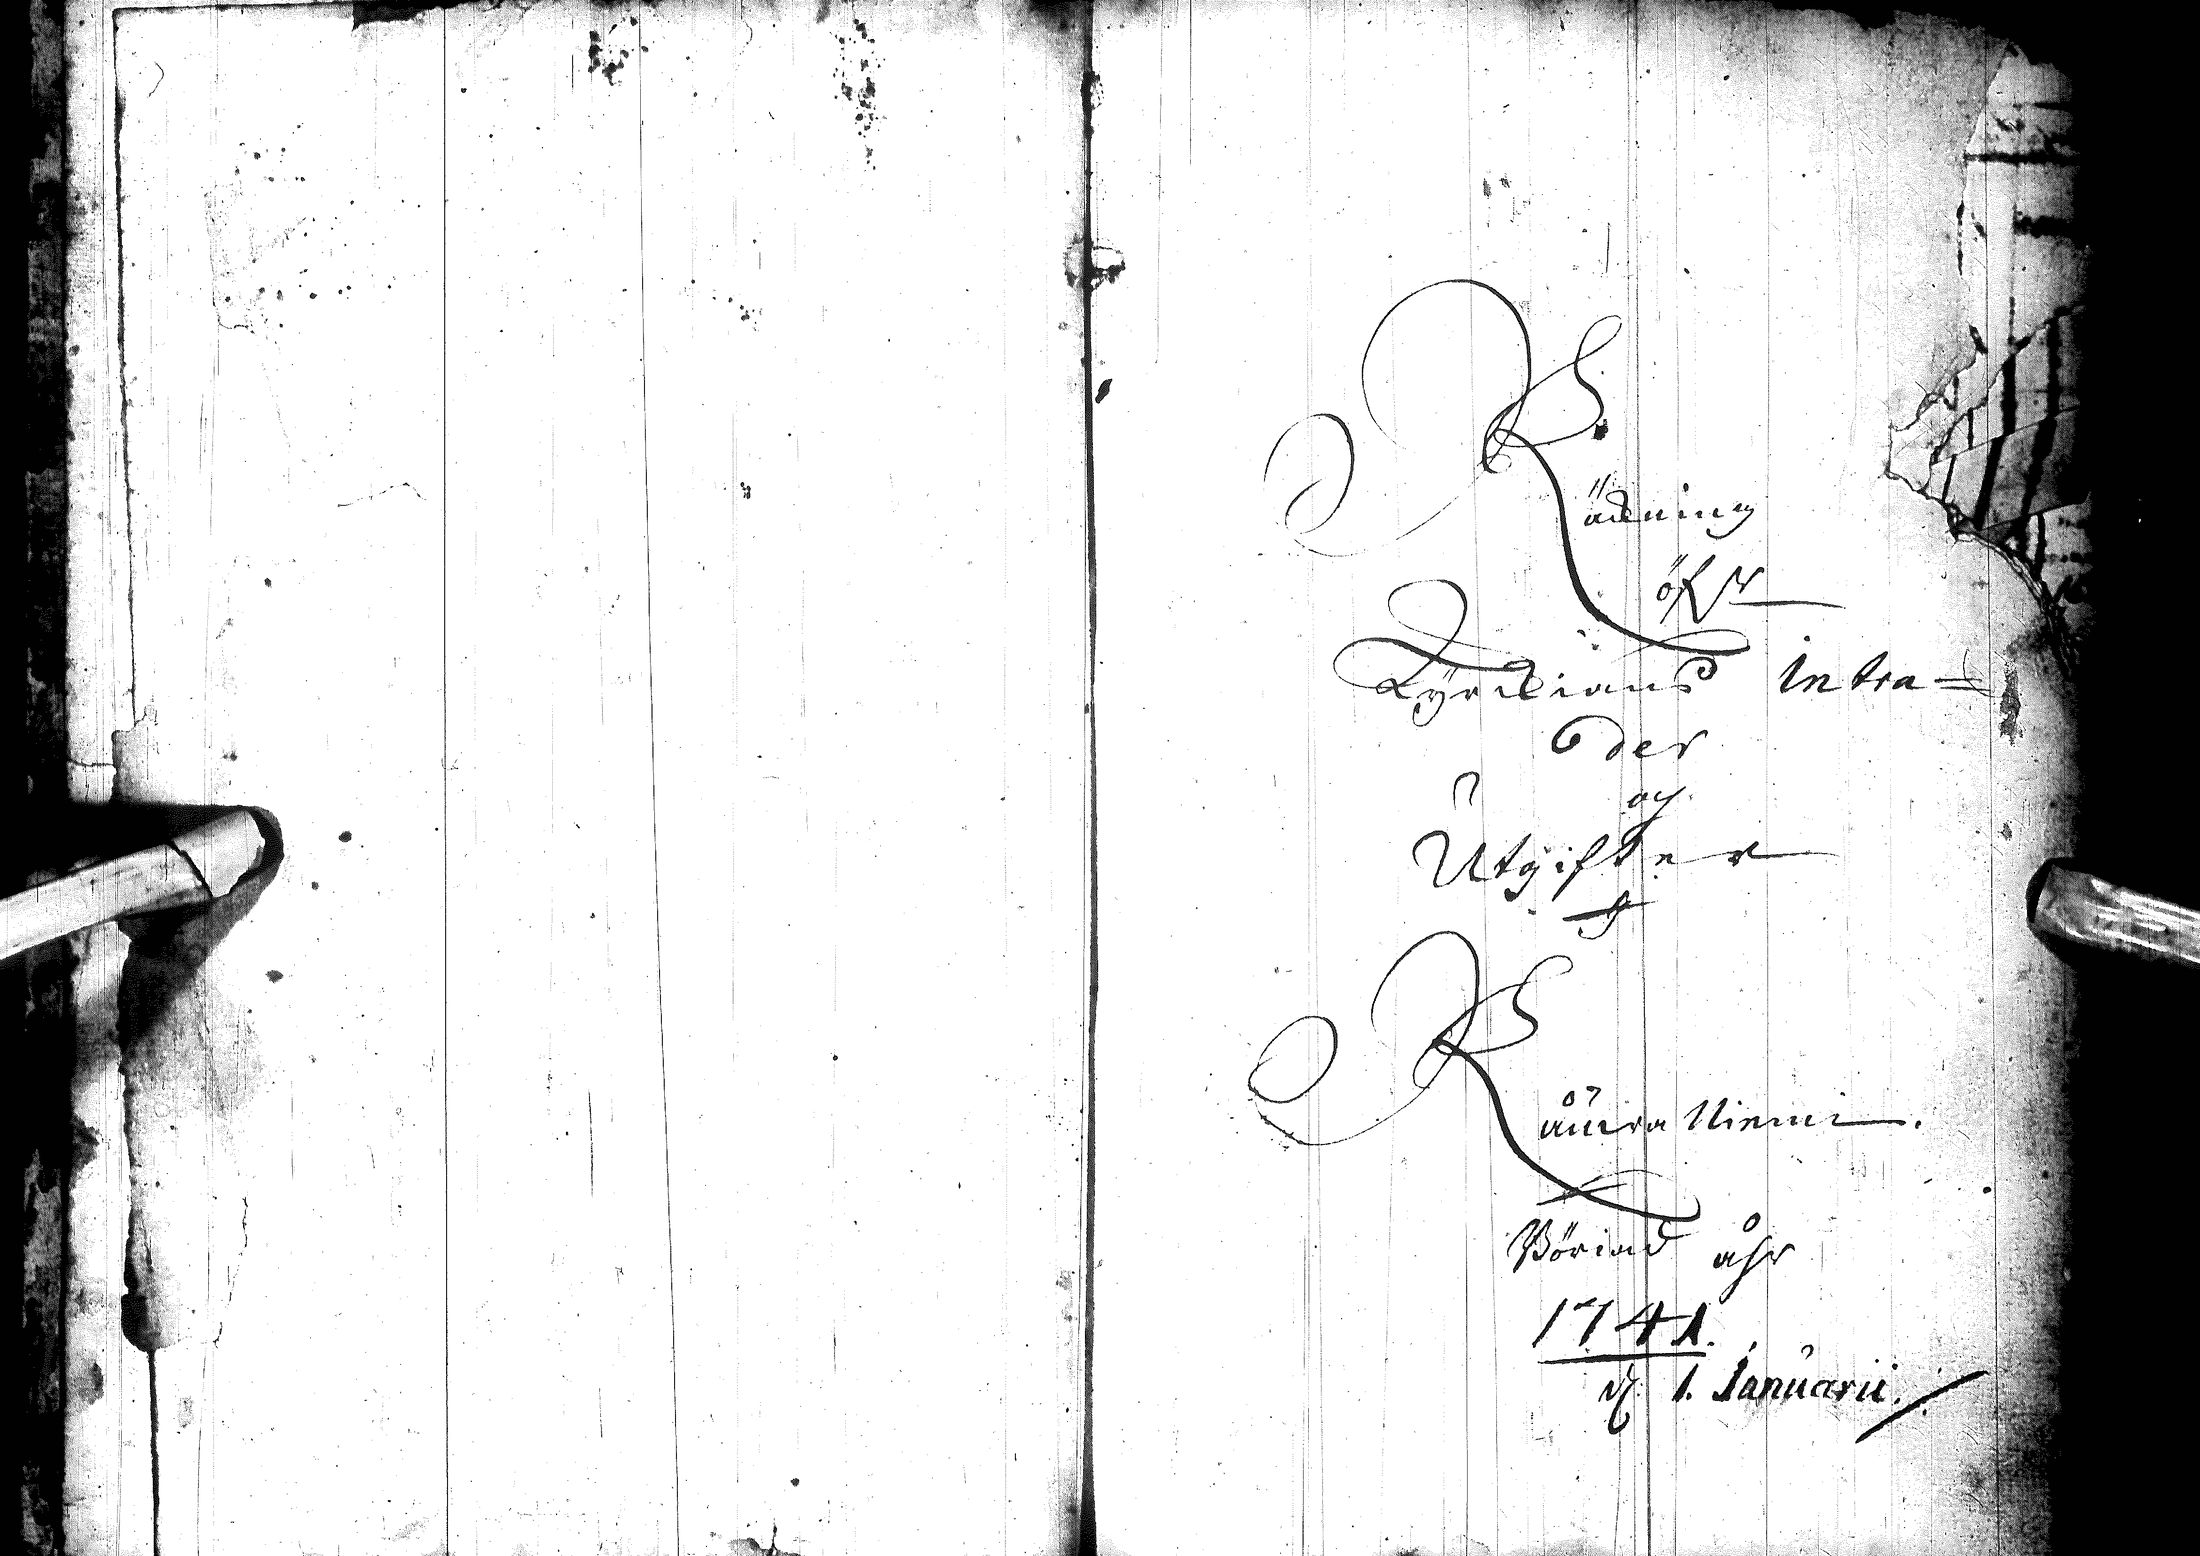 Räkning
öfwer
Kyrckians Intra-
der
och
Utgifter
J
Råutra Niemi.
Börjad åhr
1741.
d. 1. Januarii.